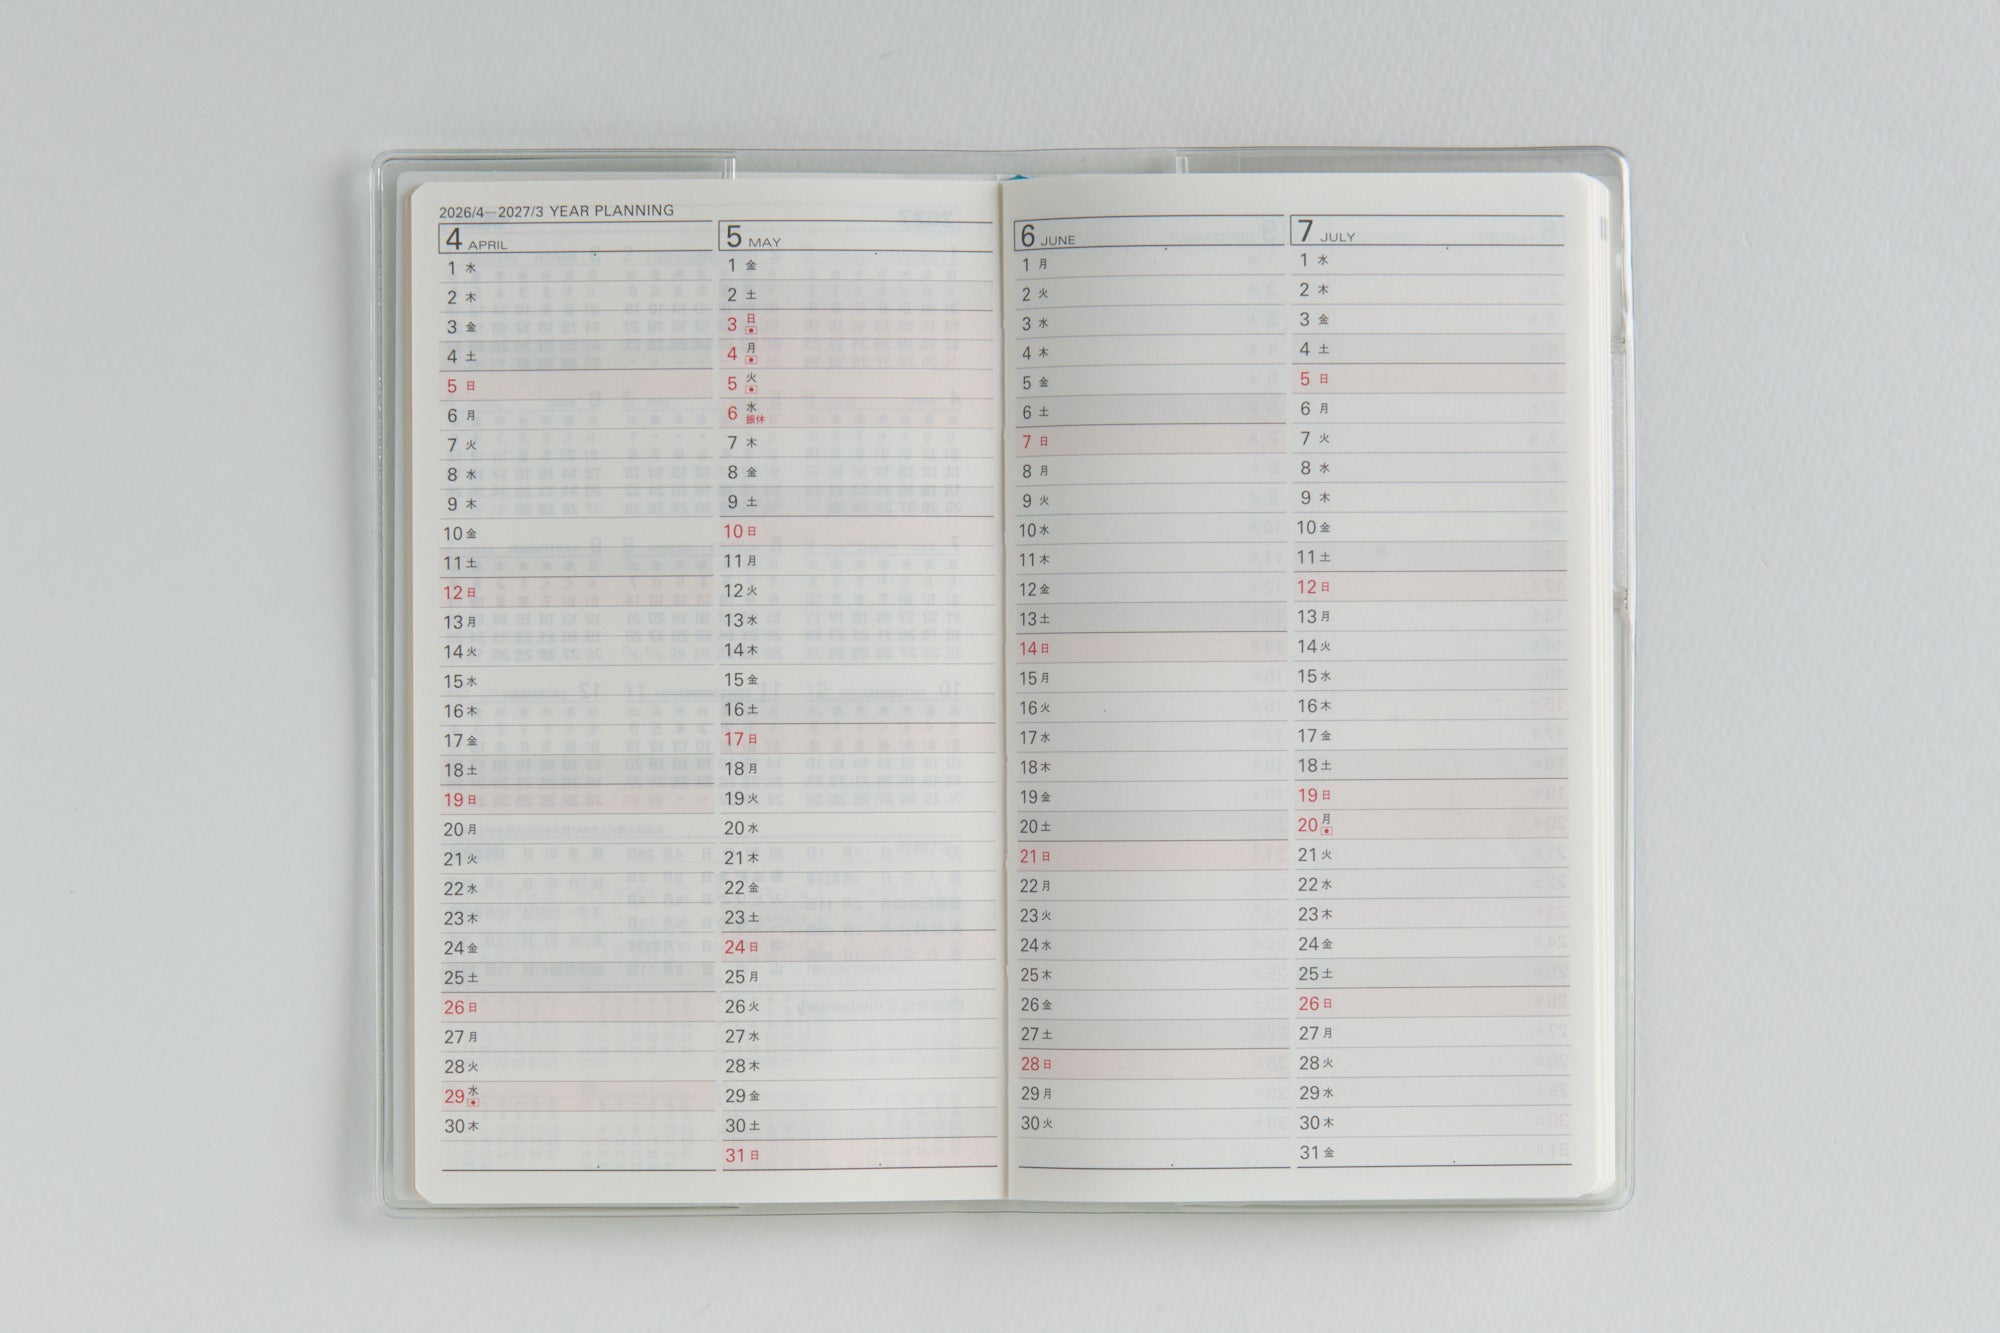 2026/4—2027/3 YEAR PLANNING
4 APRIL
1 水
2 木
3 金
4 土
5 日
6 月
7 火
8 水
9 木
10 金
11 土
12 日
13 月
14 火
15 水
16 木
17 金
18 土
19 日
20 月
21 火
22 水
23 木
24 金
25 土
26 日
27 月
28 火
29 水
30 木
5 MAY
1 金
2 土
3 日
4 月
5 火
6 水 振休
7 木
8 金
9 土
10 日
11 月
12 火
13 水
14 木
15 金
16 土
17 日
18 月
19 火
20 水
21 木
22 金
23 土
24 日
25 月
26 火
27 水
28 木
29 金
30 土
31 日
6 JUNE
1 月
2 火
3 水
4 木
5 金
6 土
7 日
8 月
9 火
10 水
11 木
12 金
13 土
14 日
15 月
16 火
17 水
18 木
19 金
20 土
21 日
22 月
23 火
24 水
25 木
26 金
27 土
28 日
29 月
30 火
7 JULY
1 水
2 木
3 金
4 土
5 日
6 月
7 火
8 水
9 木
10 金
11 土
12 日
13 月
14 火
15 水
16 木
17 金
18 土
19 日
20 月
21 火
22 水
23 木
24 金
25 土
26 日
27 月
28 火
29 水
30 木
31 金